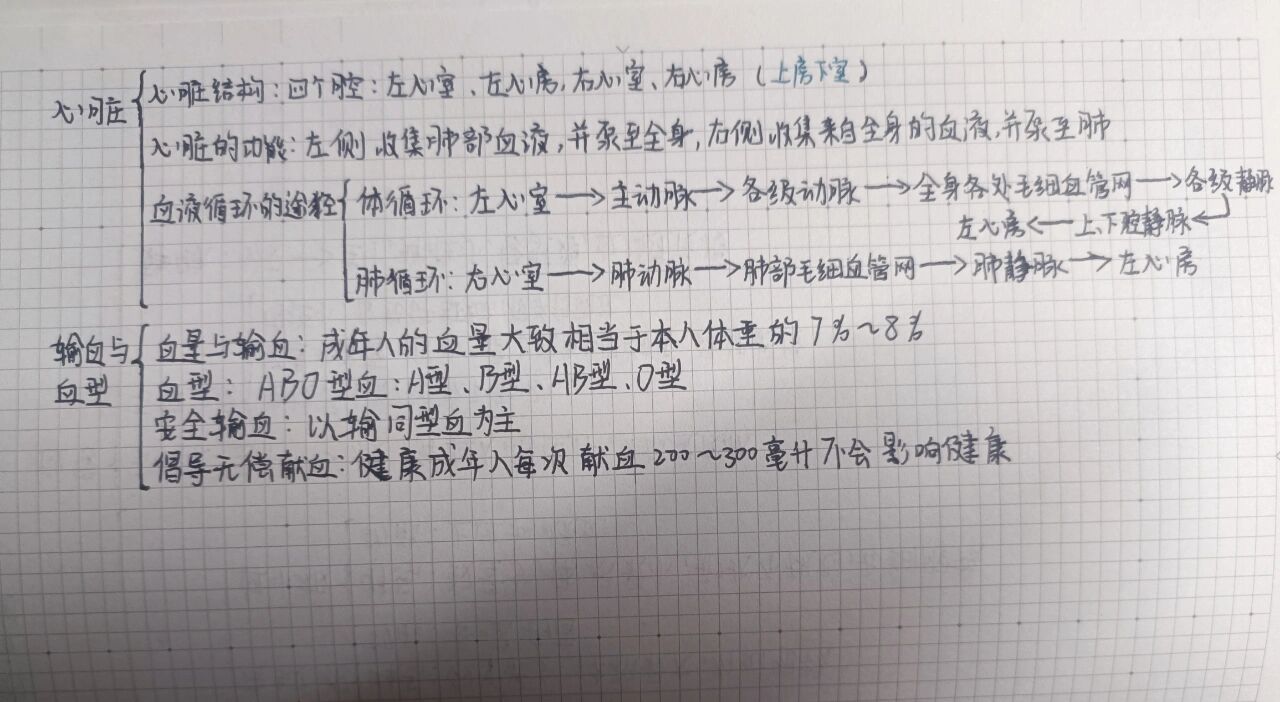 心脏
心脏结构:四个腔:左心室、左心房,右心室、右心房(上房下室)
心脏的功能:左侧收集肺部血液,并泵至全身,右侧收集来自全身的血液,并泵至肺
血液循环的途径
体循环:左心室→主动脉→各级动脉→全身各处毛细血管网→各级静脉
左心房←上、下腔静脉←
肺循环:右心室→肺动脉→肺部毛细血管网→肺静脉→左心房
输血与
血型
血量与输血:成年人的血量大致相当于本人体重的7%~8%
血型:ABO型血:A型、B型、AB型、O型
安全输血:以输同型血为主
倡导无偿献血:健康成年人每次献血200~300毫升不会影响健康